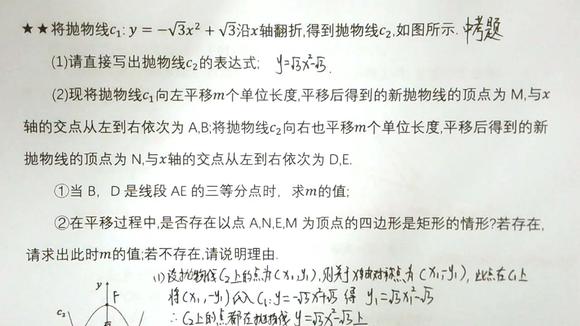 ★★将抛物线c₁: y = −√3x² + √3沿x轴翻折,得到抛物线c₂,如图所示. 中考题
(1)请直接写出抛物线c₂的表达式; y=√3x²-√3.
(2)现将抛物线c₁向左平移m个单位长度,平移后得到的新抛物线的顶点为 M,与x
轴的交点从左到右依次为 A,B;将抛物线c₂向右也平移m个单位长度,平移后得到的新
抛物线的顶点为 N,与x轴的交点从左到右依次为 D,E.
①当 B，D 是线段 AE 的三等分点时，求m的值;
②在平移过程中,是否存在以点 A,N,E,M 为顶点的四边形是矩形的情形?若存在,
请求出此时m的值;若不存在,请说明理由.
(1) 设抛物线C₂上的点为(x₁,y₁), 则关于x轴对称点为(x₁,-y₁), 此点在C₁上
将(x₁,-y₁)代入C₁: y=-√3x²+√3 得 y₁=√3x₁²-√3
∴C₂上的点都在抛物线 y=√3x²-√3上
C₂